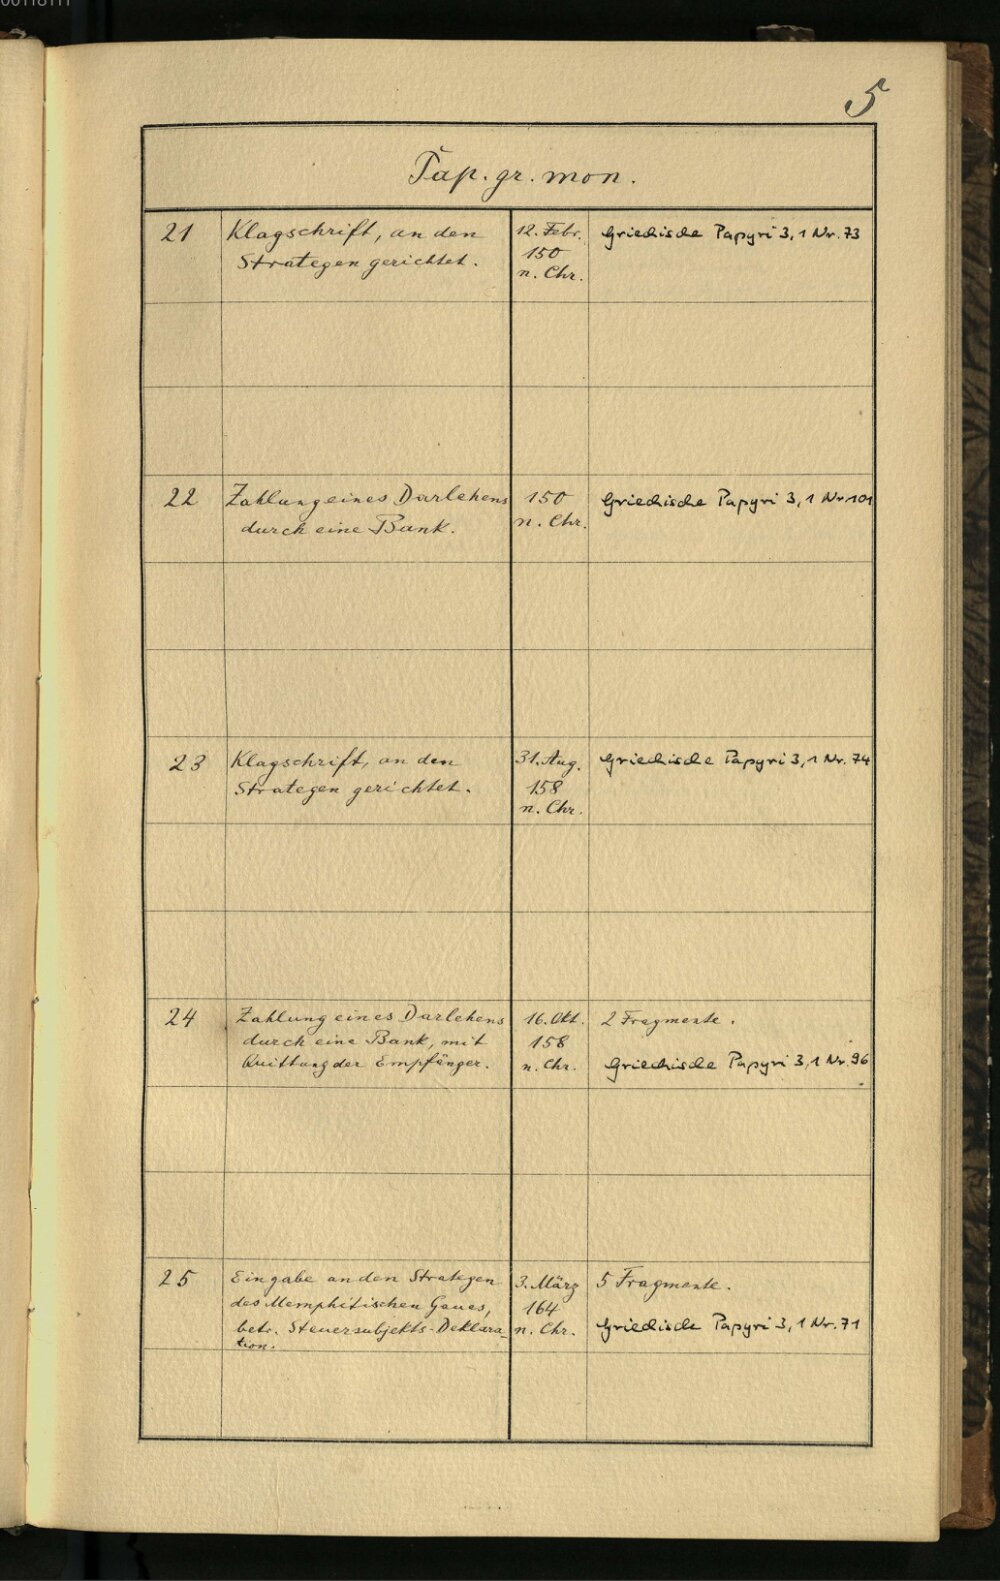 5
Pap. gr. mon.
21 Klagschrift, an den 12. Febr. Griechische Papyri 3,1 Nr. 73
Strategen gerichtet. 150
n. Chr.
22 Zahlung eines Darlehens 150 Griechische Papyri 3,1 Nr 101
durch eine Bank. n. Chr.
23 Klagschrift, an den 31. Aug. Griechische Papyri 3,1 Nr. 74
Strategen gerichtet. 158
n. Chr.
24 Zahlung eines Darlehens 16. Okt. 2 Fragmente.
durch eine Bank, mit 158
Quittung der Empfänger. n. Chr. Griechische Papyri 3,1 Nr. 96
25 Eingabe an den Strategen 3. März 5 Fragmente.
des Memphitischen Gaues, 164
betr. Steuersubjekts-Deklara- n. Chr. Griechische Papyri 3,1 Nr. 71
tion.